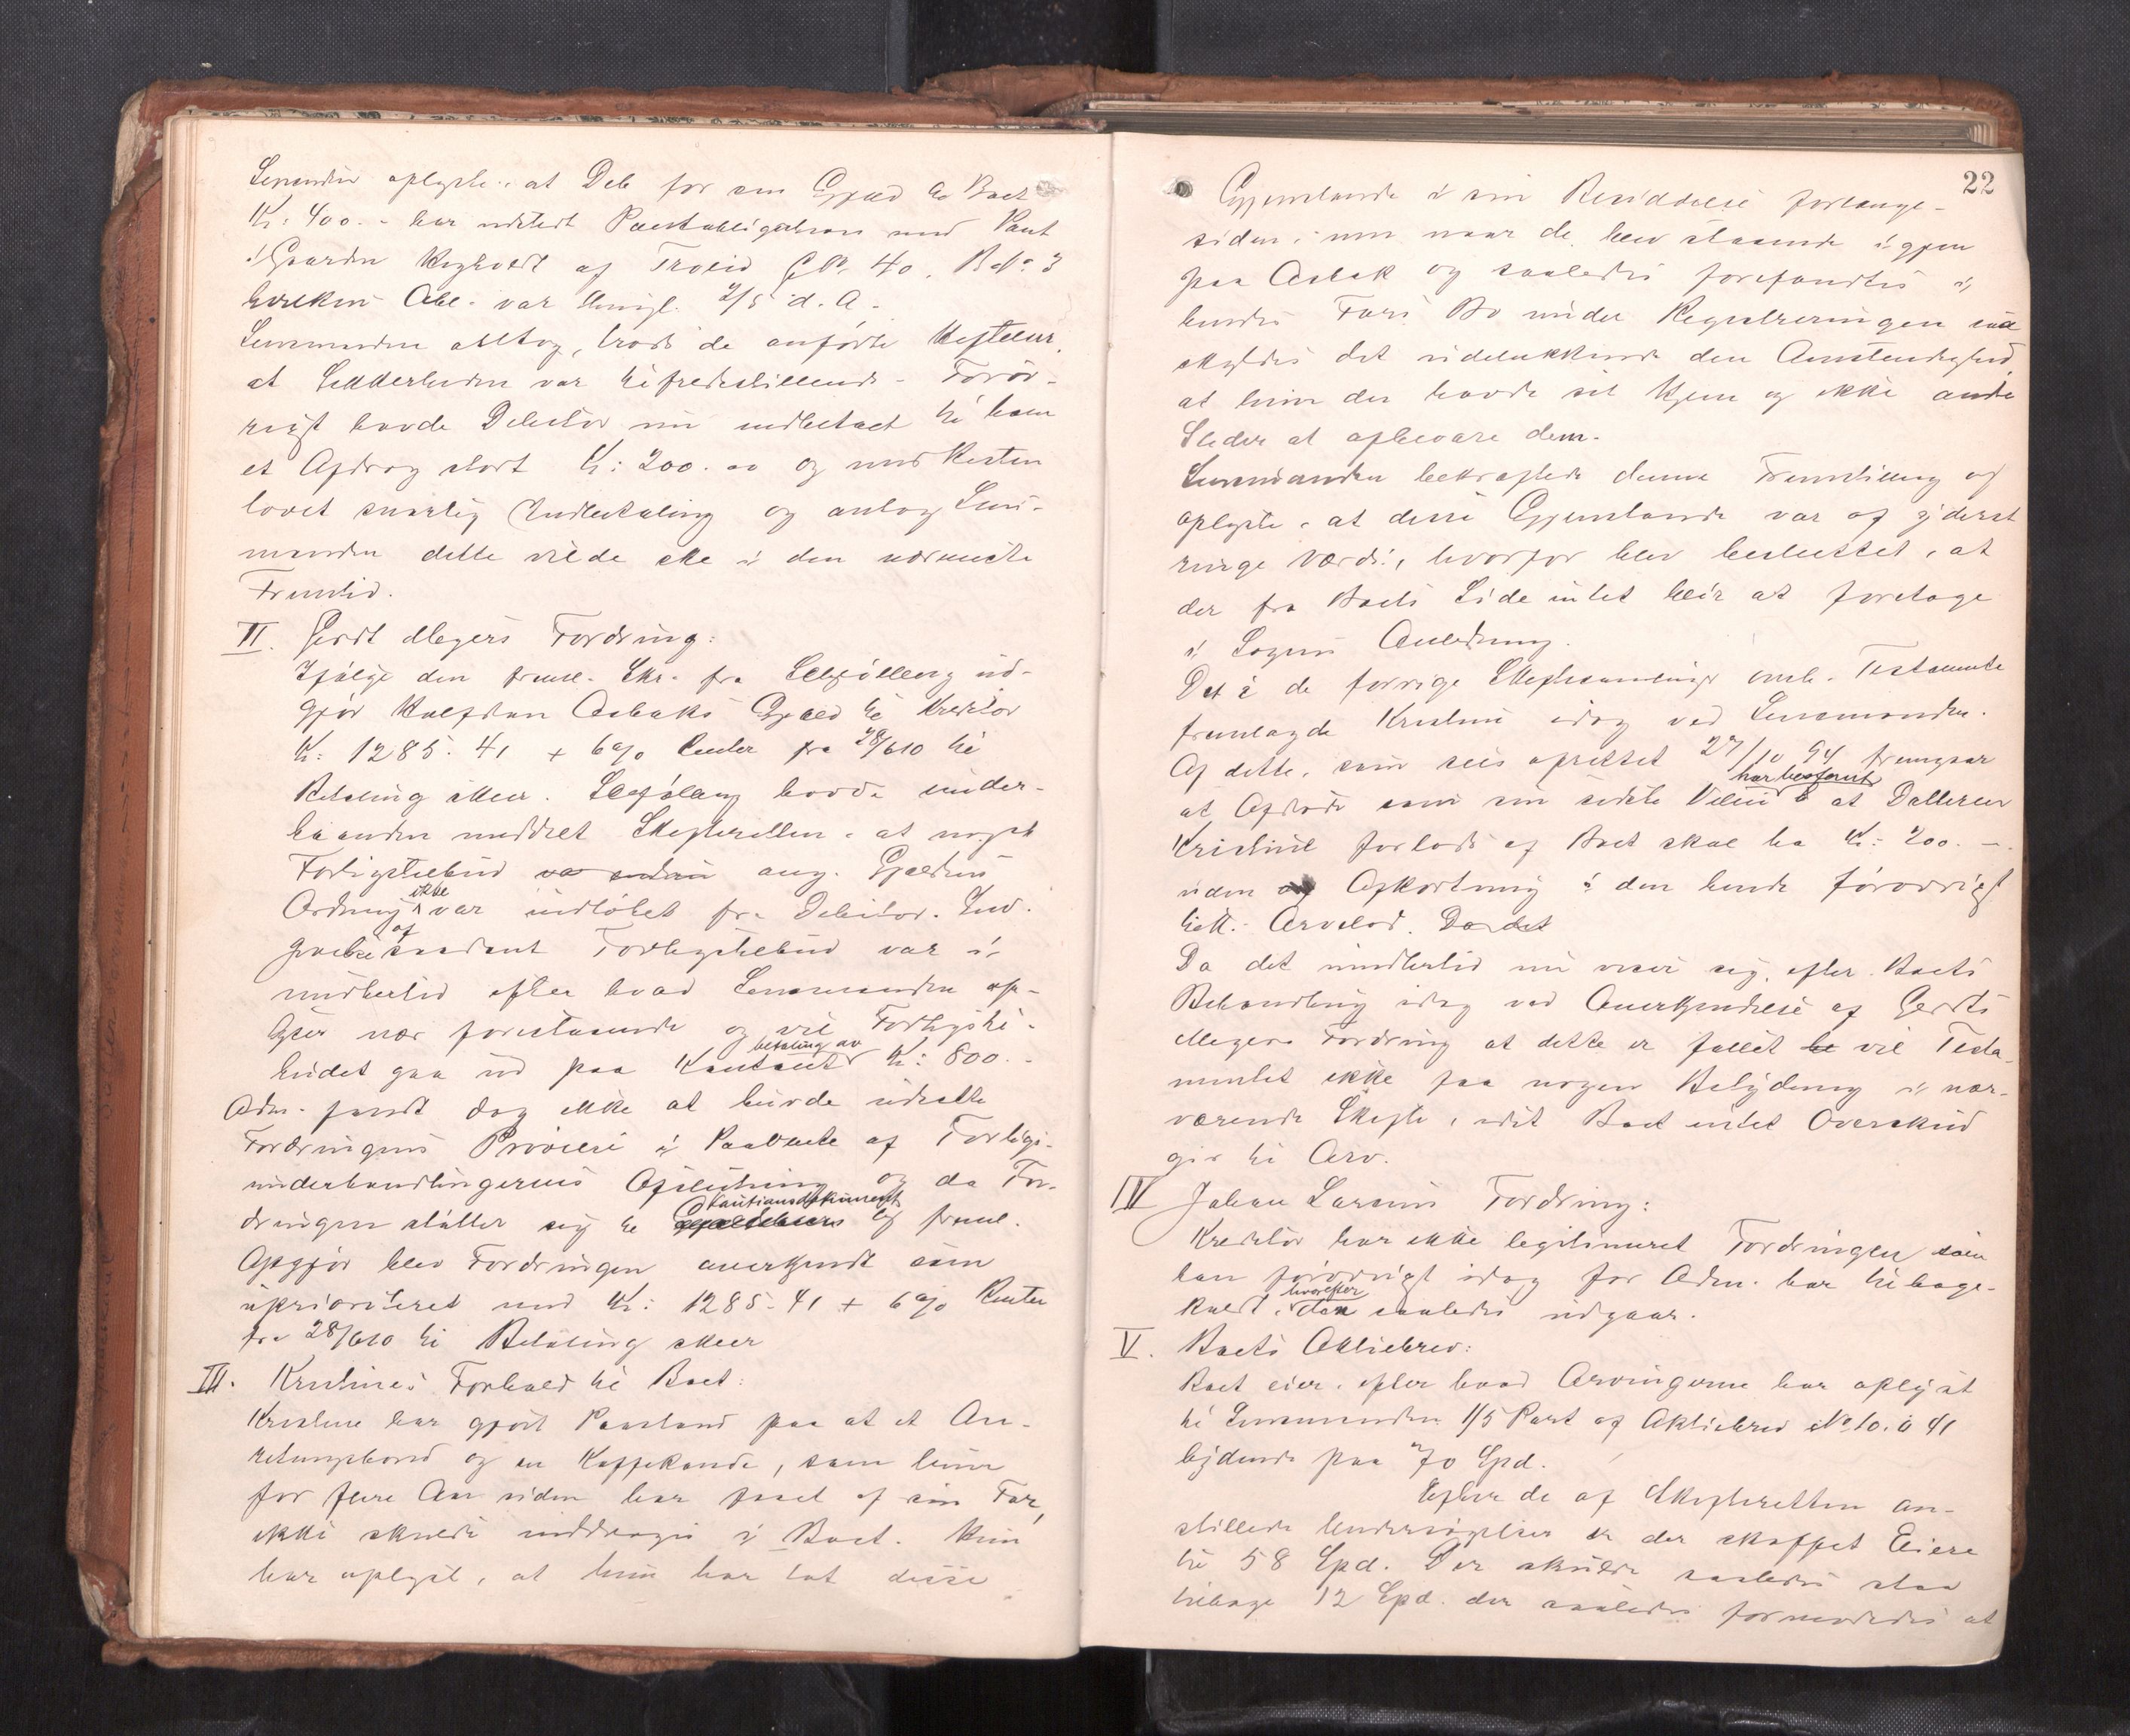 Lensmanden oplyste, at Deb for sin Gjæld til Boet
Kr: 400.- har udstedt Pantobligation med Pant
i Gaarden af GNo. 40. BNo. 3
hvilken Obl. var thingl. 2/5 d. A.
Lensmanden antog, trods de anførte Heftelser,
at Sikkerheden var tilfredsstillende. Forøv-
rigt havde Debitor nu indbetalt til ham
et Afdrag stort Kr: 200.00 og med Resten
lovet snarlig Indbetaling og antog Lens-
manden dette vilde ske i den nærmeste
Fremtid.
II. Gerdt Meyers Fordring:
Ifølge den freml. Skr. fra ud-
gjør Halfdan Aabaks Gjæld til Kreditor
Kr: 1285.41 + 6% Renter fra 28/6 10 til
Betaling skeer. havde under-
haanden meddelt Skifteretten, at noget
Forligstilbud ang. Gjældens
Ordning ikke var indløbet fra Debitor. Ind-
givelse af saadant Forligstilbud var i-
midlertid efter hvad Lensmanden op-
lyser nær forestaaende og vil Forligstil-
budet gaa ud paa Kontant betaling av Kr: 800.-
Adm. fandt dog ikke at burde udsætte
Fordringens Prøvelse i Paavente af Forligs-
underhandlingernes Afslutning og da For-
dringen støtter sig til Kautionsdokument og freml.
Opgjør blev Fordringen anerkjendt som
uprioriteret med Kr: 1285.41 + 6% Renter
fra 28/6 10 til Betaling skeer
III. Kristines Forhold til Boet:
Kristine har gjort Paastand paa at et An-
retningsbord og en Kaffekande, som hun
for flere Aar siden har faaet af sin Far,
ikke skulde inddrages i Boet. Hun
har oplyst, at hun har hat disse
22
Gjenstande i sin Besiddelse forlænge-
siden; men naar de blev staaende igjen
paa Aabak og saaledes forefandtes i
hendes Fars Bo under Registreringen saa
skyldes det udelukkende den Omstændighed,
at hun der havde sit Hjem og ikke andre
Steder at opbevare dem.
Lensmanden bekræftede denne Fremstilling og
oplyste, at disse Gjenstande var af yderst
ringe Værdi, hvorfor blev besluttet, at
der fra Boets Side intet blir at foretage
i Sagens Anledning.
Det i de forrige Skiftesamlinger omh. Testamente
fremlagde Kristine idag ved Lensmanden.
Af dette, som sees oprettet 27/10 94 fremgaar
at Afdøde som sin sidste Villie har bestemt at Datteren
Kristine forlods af Boet skal ha Kr: 200.-
uden Afkortning i den hende forøvrigt
tilk. Arvelod. Da det
Da det imidlertid nu viser sig, efter Boets
Behandling idag ved Anerkjendelse af Gerdts
Meyers Fordring at dette er fallit vil Testa-
mentet ikke faa nogen Betydning i nær-
værende Skifte, idet Boet intet Overskud
gir til Arv.
IV Johan Larsens Fordring:
Kreditor har ikke legitimeret Fordringen som
han forøvrigt idag for Adm. har tilbage-
kaldt, hvorefter den saaledes udgaar.
V. Boets Aktiebrev:
Boet eier, efter hvad Arvingerne har oplyst
til Lensmanden 1/5 Part af Aktiebrev No. 10. à 41
lydende paa 70 Spd.
Efter de af Skifteretten an-
stillede Undersøgelser er der skaffet Eiere
til 58 Spd. Der skulde saaledes staa
tilbage 12 Spd. der saaledes formodedes at